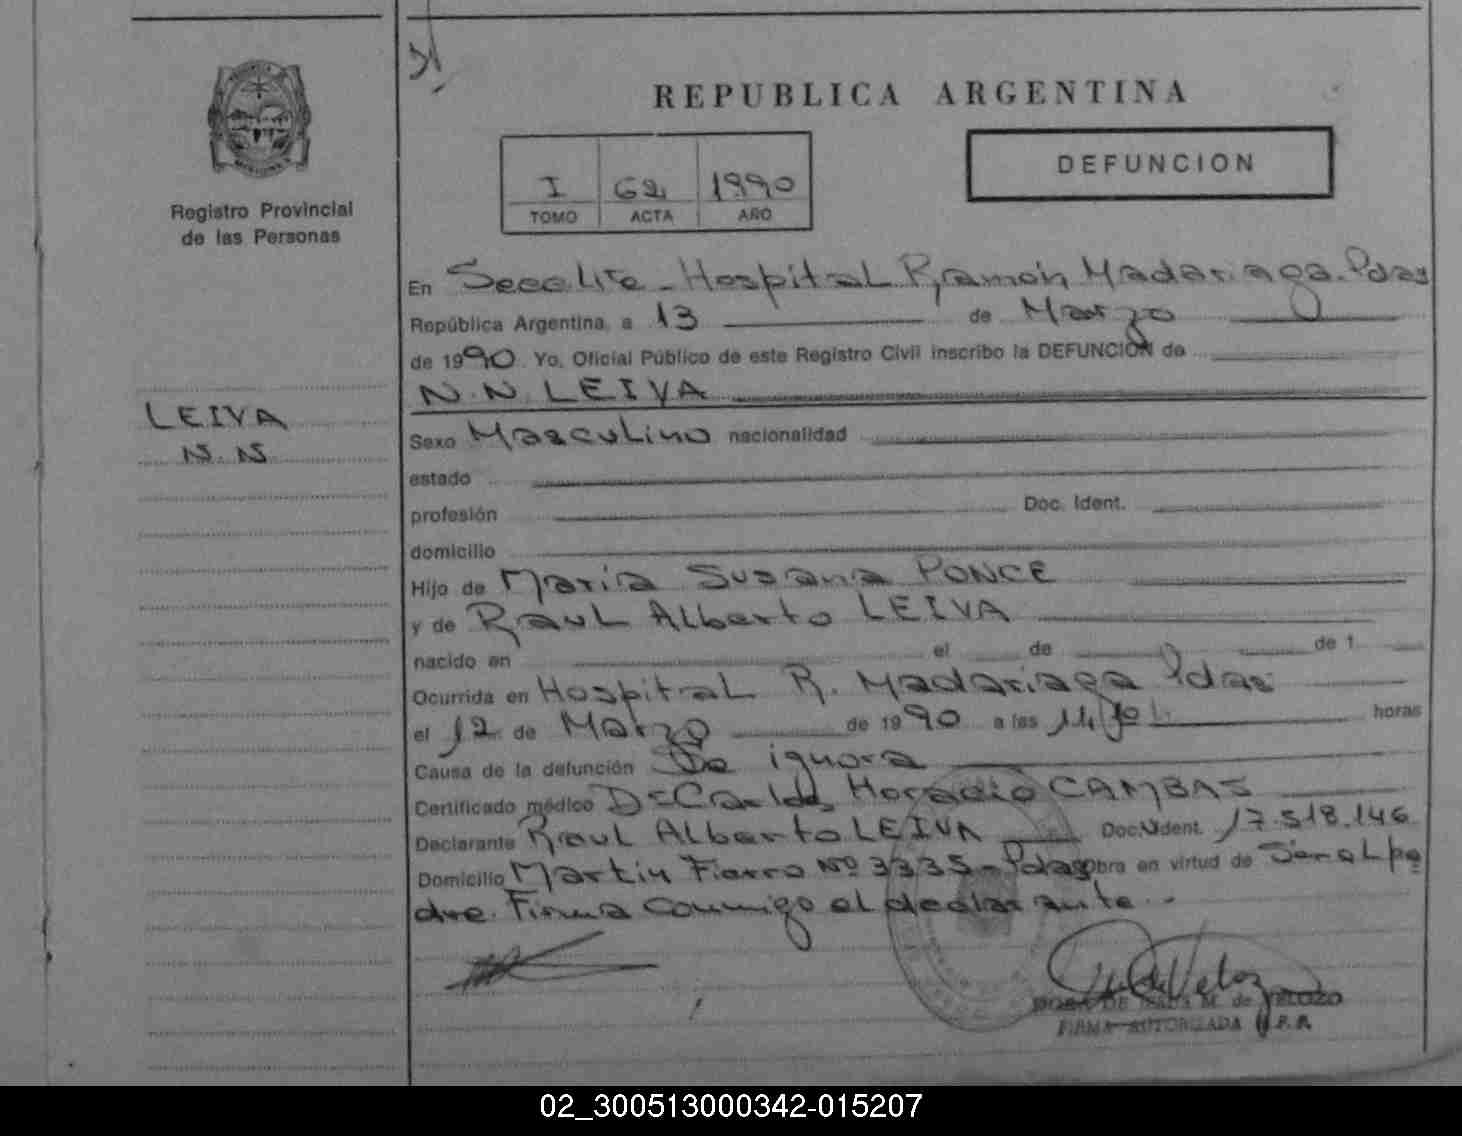 REPUBLICA ARGENTINA
DEFUNCION
I 62 1990
TOMO ACTA AÑO
Registro Provincial
de las Personas
LEIVA
N.N
En Secc. Hospital Ramón Madariaga. Pdas
República Argentina, a 13 de Marzo
de 1990. Yo, Oficial Público de este Registro Civil inscribo la DEFUNCION de
N.N. LEIVA
Sexo Masculino nacionalidad
estado
profesión Doc. Ident.
domicilio
Hijo de María Susana PONCE
y de Raul Alberto LEIVA
nacido en el de de 1
Ocurrida en Hospital R. Madariaga Pdas
el 12 de Marzo de 1990 a las horas
Causa de la defunción Se ignora
Certificado médico Dr Carlos Horacio CAMBAS
Declarante Raul Alberto LEIVA Doc. Ident. 17.518.146
Domicilio Martin Fierro Nº 3335 - Pdas Obra en virtud de Ser el pa
dre. Firma conmigo el declarante.-
DORA DE JESUS M. de VELOZO
FIRMA AUTORIZADA
02_300513000342-015207